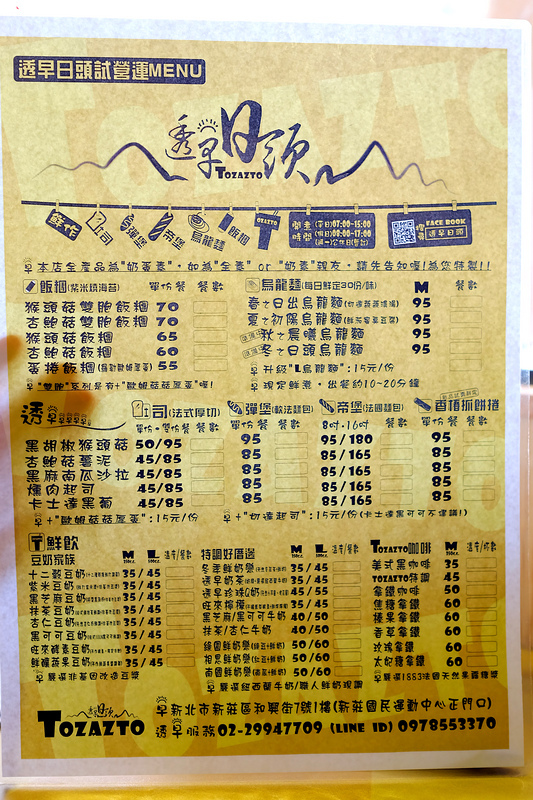 透早日頭試營運MENU
透早日頭
TOZAZTO
鮮作 吐司 彈堡 帝堡 烏龍麵 飯糰 TOZAZTO
開老時間 (平日)07:00-15:00
(假日)09:00-17:00
FACE BOOK
透早日頭
本店全產品為"奶蛋素"，如為"全素" or "奶素"親友，請先告知喔!為您特製!!
飯糰(紫米燒海苔) 單份 餐數
猴頭菇雙胞飯糰 70
杏鮑菇雙胞飯糰 70
猴頭菇飯糰 65
杏鮑菇飯糰 60
蛋捲飯糰 55
烏龍麵(每日鮮定30份/味) M 餐數
春之日出烏龍麵 95
夏之初陽烏龍麵 95
秋之晨曦烏龍麵 95
冬之日頭烏龍麵 95
升級"L烏龍麵"：15元/份
現定鮮煮，出餐約10~20分鐘
透早
吐司(法式厚切) 單份 餐數
彈堡(軟法麵包) 單份 餐數
帝堡(法國麵包) 8吋·16吋 餐數
香椿抓餅捲 單份 餐數
黑胡椒猴頭菇 50/95 95 95/180 95
杏鮑菇薯泥 45/85 85 85/165 85
黑麻南瓜沙拉 45/85 85 85/165 85
燻肉起司 45/85 85 85/165 85
卡士達黑葡 45/85 85 85/165 85
+"歐姆菇菇蔬蛋"：15元/份 +"奶達起司"：15元/份(卡士達黑可可不建議!)
鮮飲
豆奶家族 M L 溫度/餐數
十二穀豆奶 35/45
紫米豆奶 35/45
黑芝麻豆奶 35/45
抹茶豆奶 35/45
杏仁豆奶 35/45
黑可可豆奶 35/45
旺來酵素豆奶 35/45
鮮釀蔬果豆奶 35/45
嚴選非基因改造豆漿
特調好厝選 M L 溫度/餐數
冬季鮮奶麥 35/45
透早奶茶 35/45
透早珍珠Q奶 35/45
旺來檸檬 35/45
黑芝麻/黑可可牛奶 40/50
抹茶/杏仁牛奶 40/50
綠園鮮奶麥 50/60
相思鮮奶麥 50/60
南國鮮奶麥 50/60
嚴選紐西蘭牛奶/職人鮮奶現調
TOZAZTO咖啡 M 溫度/杯數
美式黑咖啡 35
TOZAZTO特調 45
拿鐵咖啡 50
焦糖拿鐵 60
榛果拿鐵 60
香草拿鐵 60
玫瑰拿鐵 60
太妃糖拿鐵 60
嚴選1883法國天然果露糖漿
TOZAZTO
新北市新莊區和興街7號1樓(新莊國民運動中心正門口)
透早服務02-29947709 (LINE ID) 0978553370